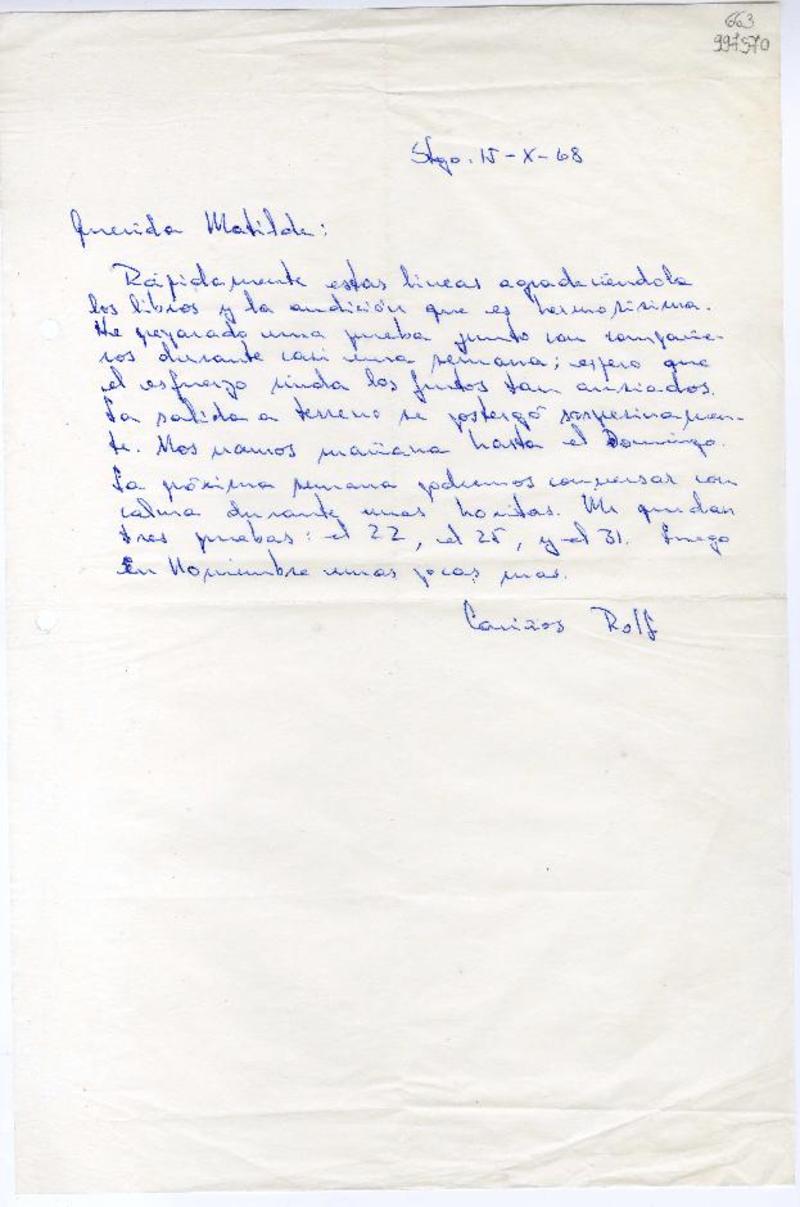 663
997570
Stgo. 15-X-68
Querida Matilde:
Rápidamente estas lineas agradeciéndole
los libros y la audición que es hermosísima.
He preparado una prueba junto con compañe-
ros durante casi una semana; espero que
el esfuerzo rinda los frutos tan ansiados.
La salida a terreno se postergó sorpresivamen-
te. Nos vamos mañana hasta el Domingo.
La próxima semana podremos conversar con
calma durante unas horitas. Me quedan
tres pruebas: el 22, el 25, y el 31. Luego
En Noviembre unas pocas mas.
Cariños Rolf